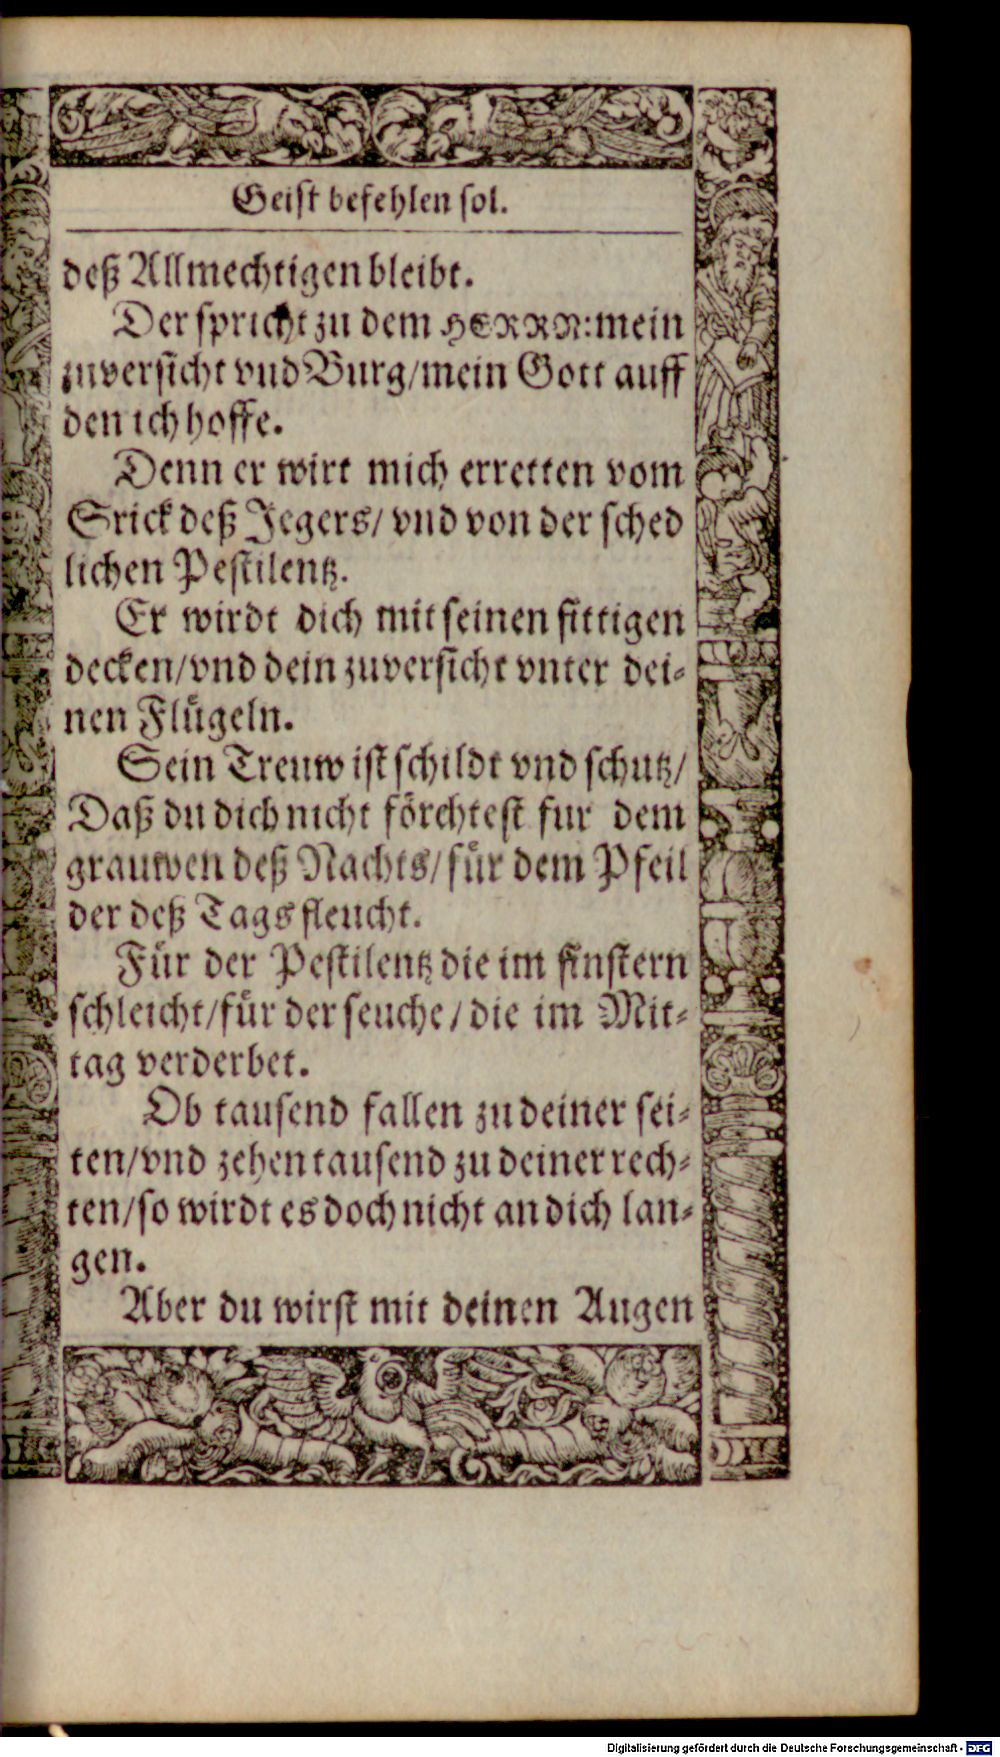 Geist befehlen sol.
deß Allmechtigen bleibt.
Der spricht zu dem HERRN: mein
zuversicht vnd Burg/mein Gott auff
den ich hoffe.
Denn er wirt mich erretten vom
Srick deß Jegers/ vnd von der sched
lichen Pestilentz.
Er wirdt dich mit seinen fittigen
decken/vnd dein zuversicht vnter dei-
nen Flügeln.
Sein Treuw ist schildt vnd schutz/
Daß du dich nicht förchtest fur dem
grauwen deß Nachts/für dem Pfeil
der deß Tags fleucht.
Für der Pestilentz die im finstern
schleicht/für der seuche/die im Mit-
tag verderbet.
Ob tausend fallen zu deiner sei-
ten/vnd zehen tausend zu deiner rech-
ten/so wirdt es doch nicht an dich lan-
gen.
Aber du wirst mit deinen Augen
Digitalisierung gefördert durch die Deutsche Forschungsgemeinschaft - DFG